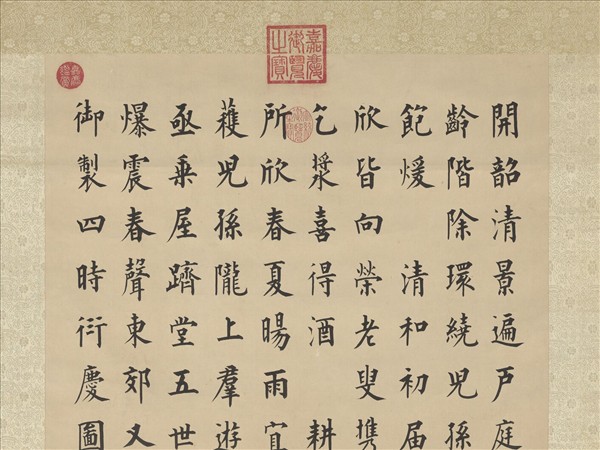 嘉慶御覽之寶
開韶清景遍戶庭
齡階除環繞兒孫
飽煖 清和初届
欣皆向榮老叟攜
乞漿喜得酒 耕
所欣春夏暘雨宜
穫兒孫隴上羣遊
亟乘屋躋堂五世
爆震春聲東郊又
御製四時衍慶圖